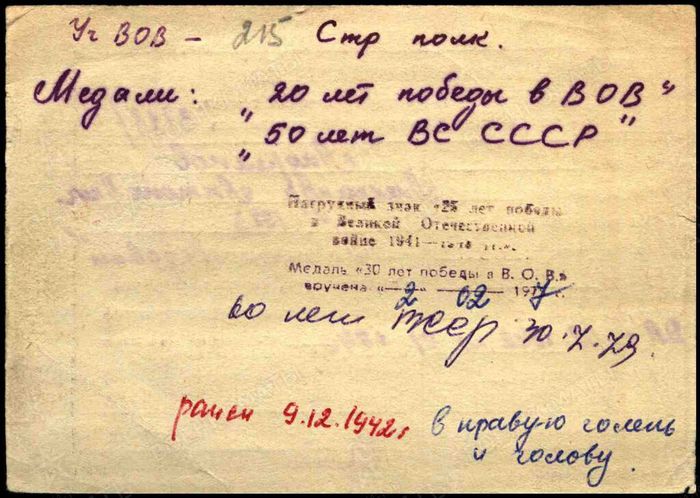 Уч ВОВ - 215 Стр полк.
Медали: "20 лет победы в ВОВ"
"50 лет ВС СССР"
Нагрудный знак «25 лет победы
в Великой Отечественной
войне 1941—1945 гг.».
Медаль «30 лет победы в В. О. В.»
вручена «2» 02 1977 г.
60 лет 30.X.79.
ранен 9.12.1942г в правую голень
и голову.